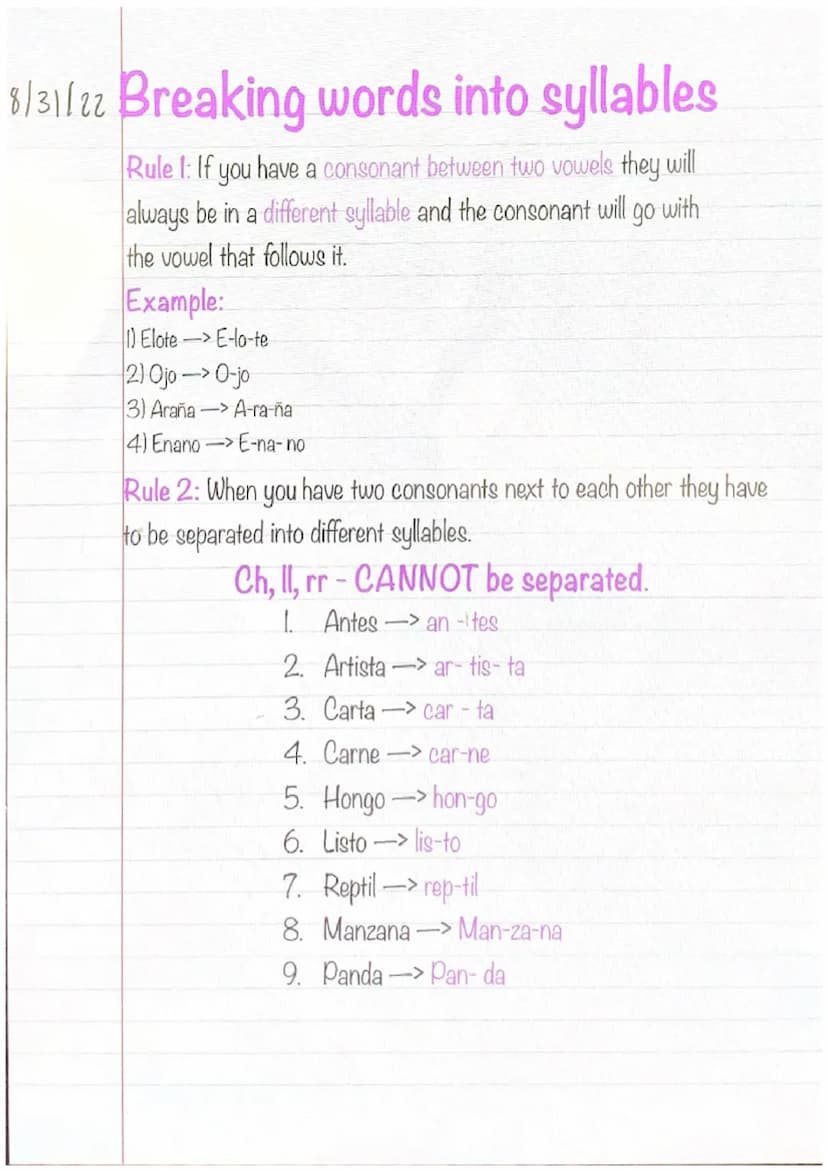 8/31/22 Breaking words into syllables
Rule 1: If you have a consonant between two vowels they will
always be in a different syllable and the consonant will go with
the vowel that follows it.
Example:
1) Elote —> E-lo-te
2) Ojo —> O-jo
3) Araña —> A-ra-ña
4) Enano —> E-na- no
Rule 2: When you have two consonants next to each other they have
to be separated into different syllables.
Ch, ll, rr - CANNOT be separated.
1. Antes —> an - tes
2. Artista —> ar- tis- ta
3. Carta —> car - ta
4. Carne —> car-ne
5. Hongo —> hon-go
6. Listo —> lis-to
7. Reptil —> rep-til
8. Manzana —> Man-za-na
9. Panda —> Pan- da